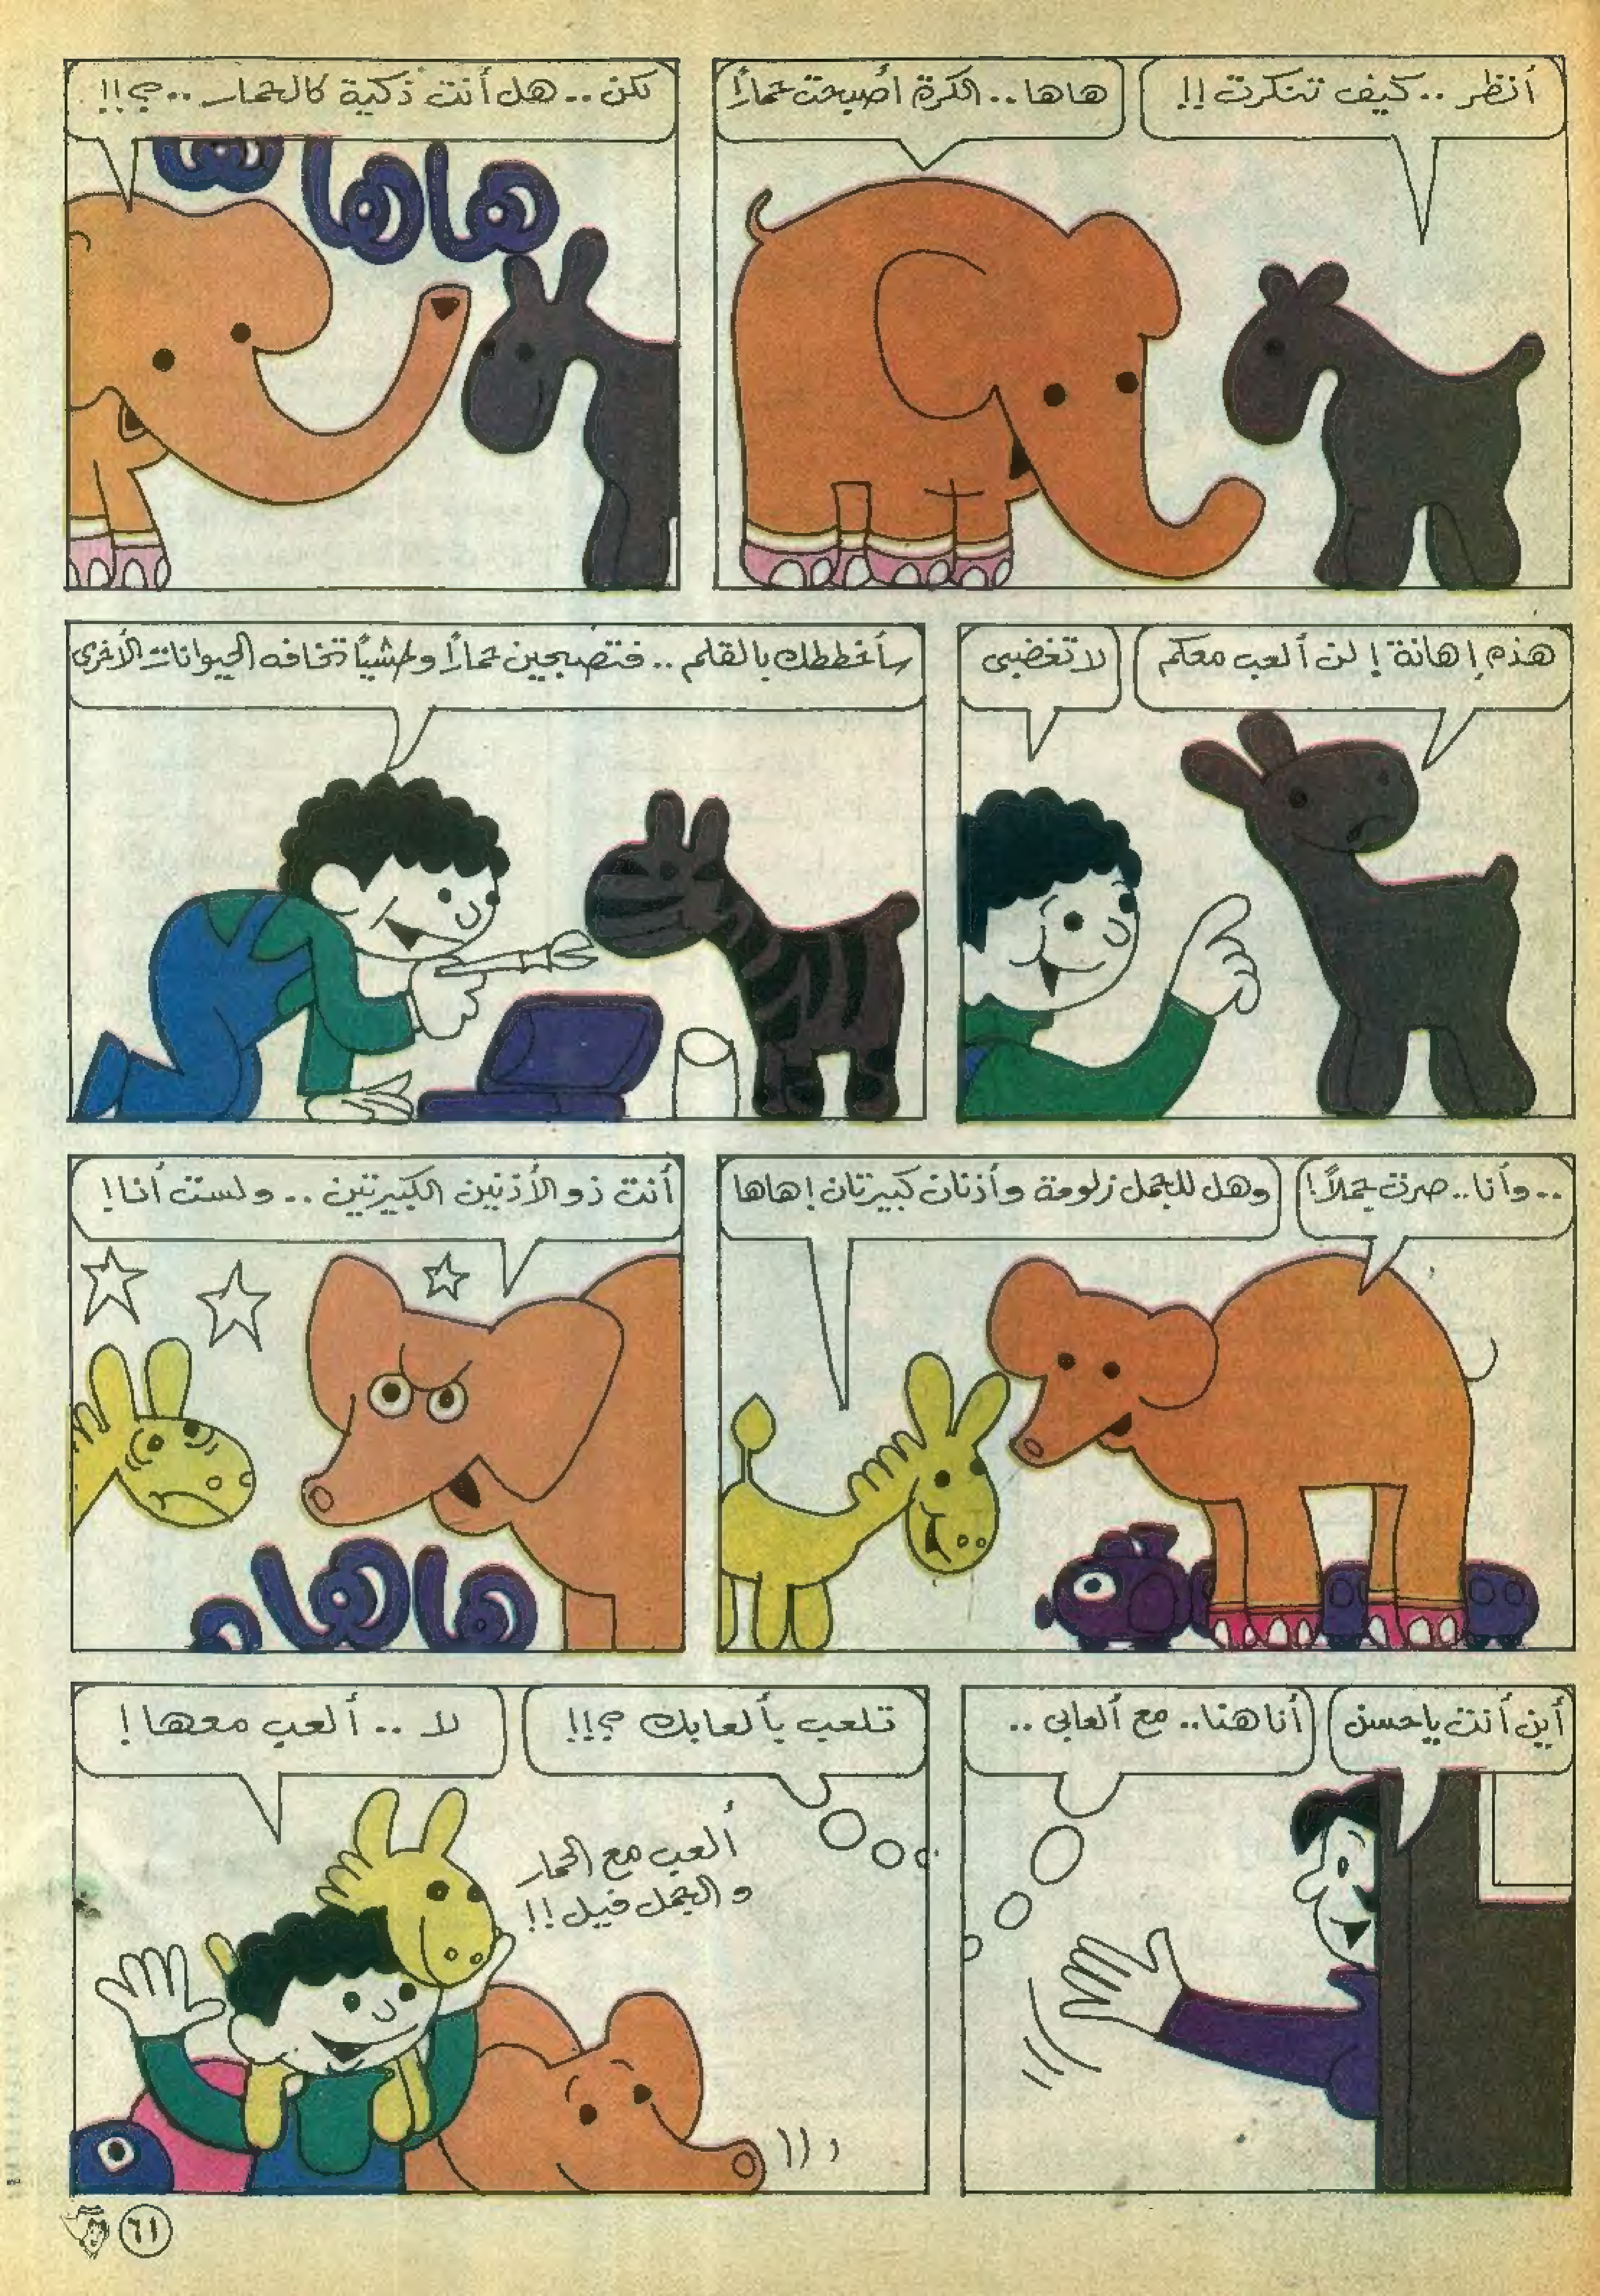 أنظر .. كيف تنكرت !!
هاها .. الكرة أصبحت حماراً
لكن .. هل أنت ذكية كالحمار ..؟!!
هاها ها
هذه إهانة ! لن ألعب معكم
لا تغضبي
سأخططك بالقلم .. فتصبحين حماراً وحشياً تخافه الحيوانات الأخرى
.. وأنا .. صرت جملاً !
وهل للجمل زلومة وأذنان كبيرتان ! هاها
أنت ذو الأذنين الكبيرتين .. ولست أنا !
هاها
أين أنت يا حسن
أنا هنا .. مع ألعابي ..
تلعب بألعابك ؟!!
لا .. ألعب معها !
ألعب مع الحمار
و الجمل فيل !!
٦١